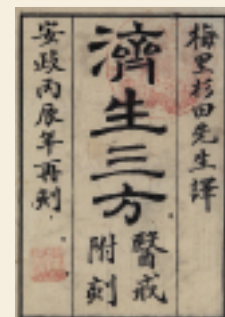 梅里杉田先生譯
濟生三方
醫戒
附刻
安政丙辰年再刻